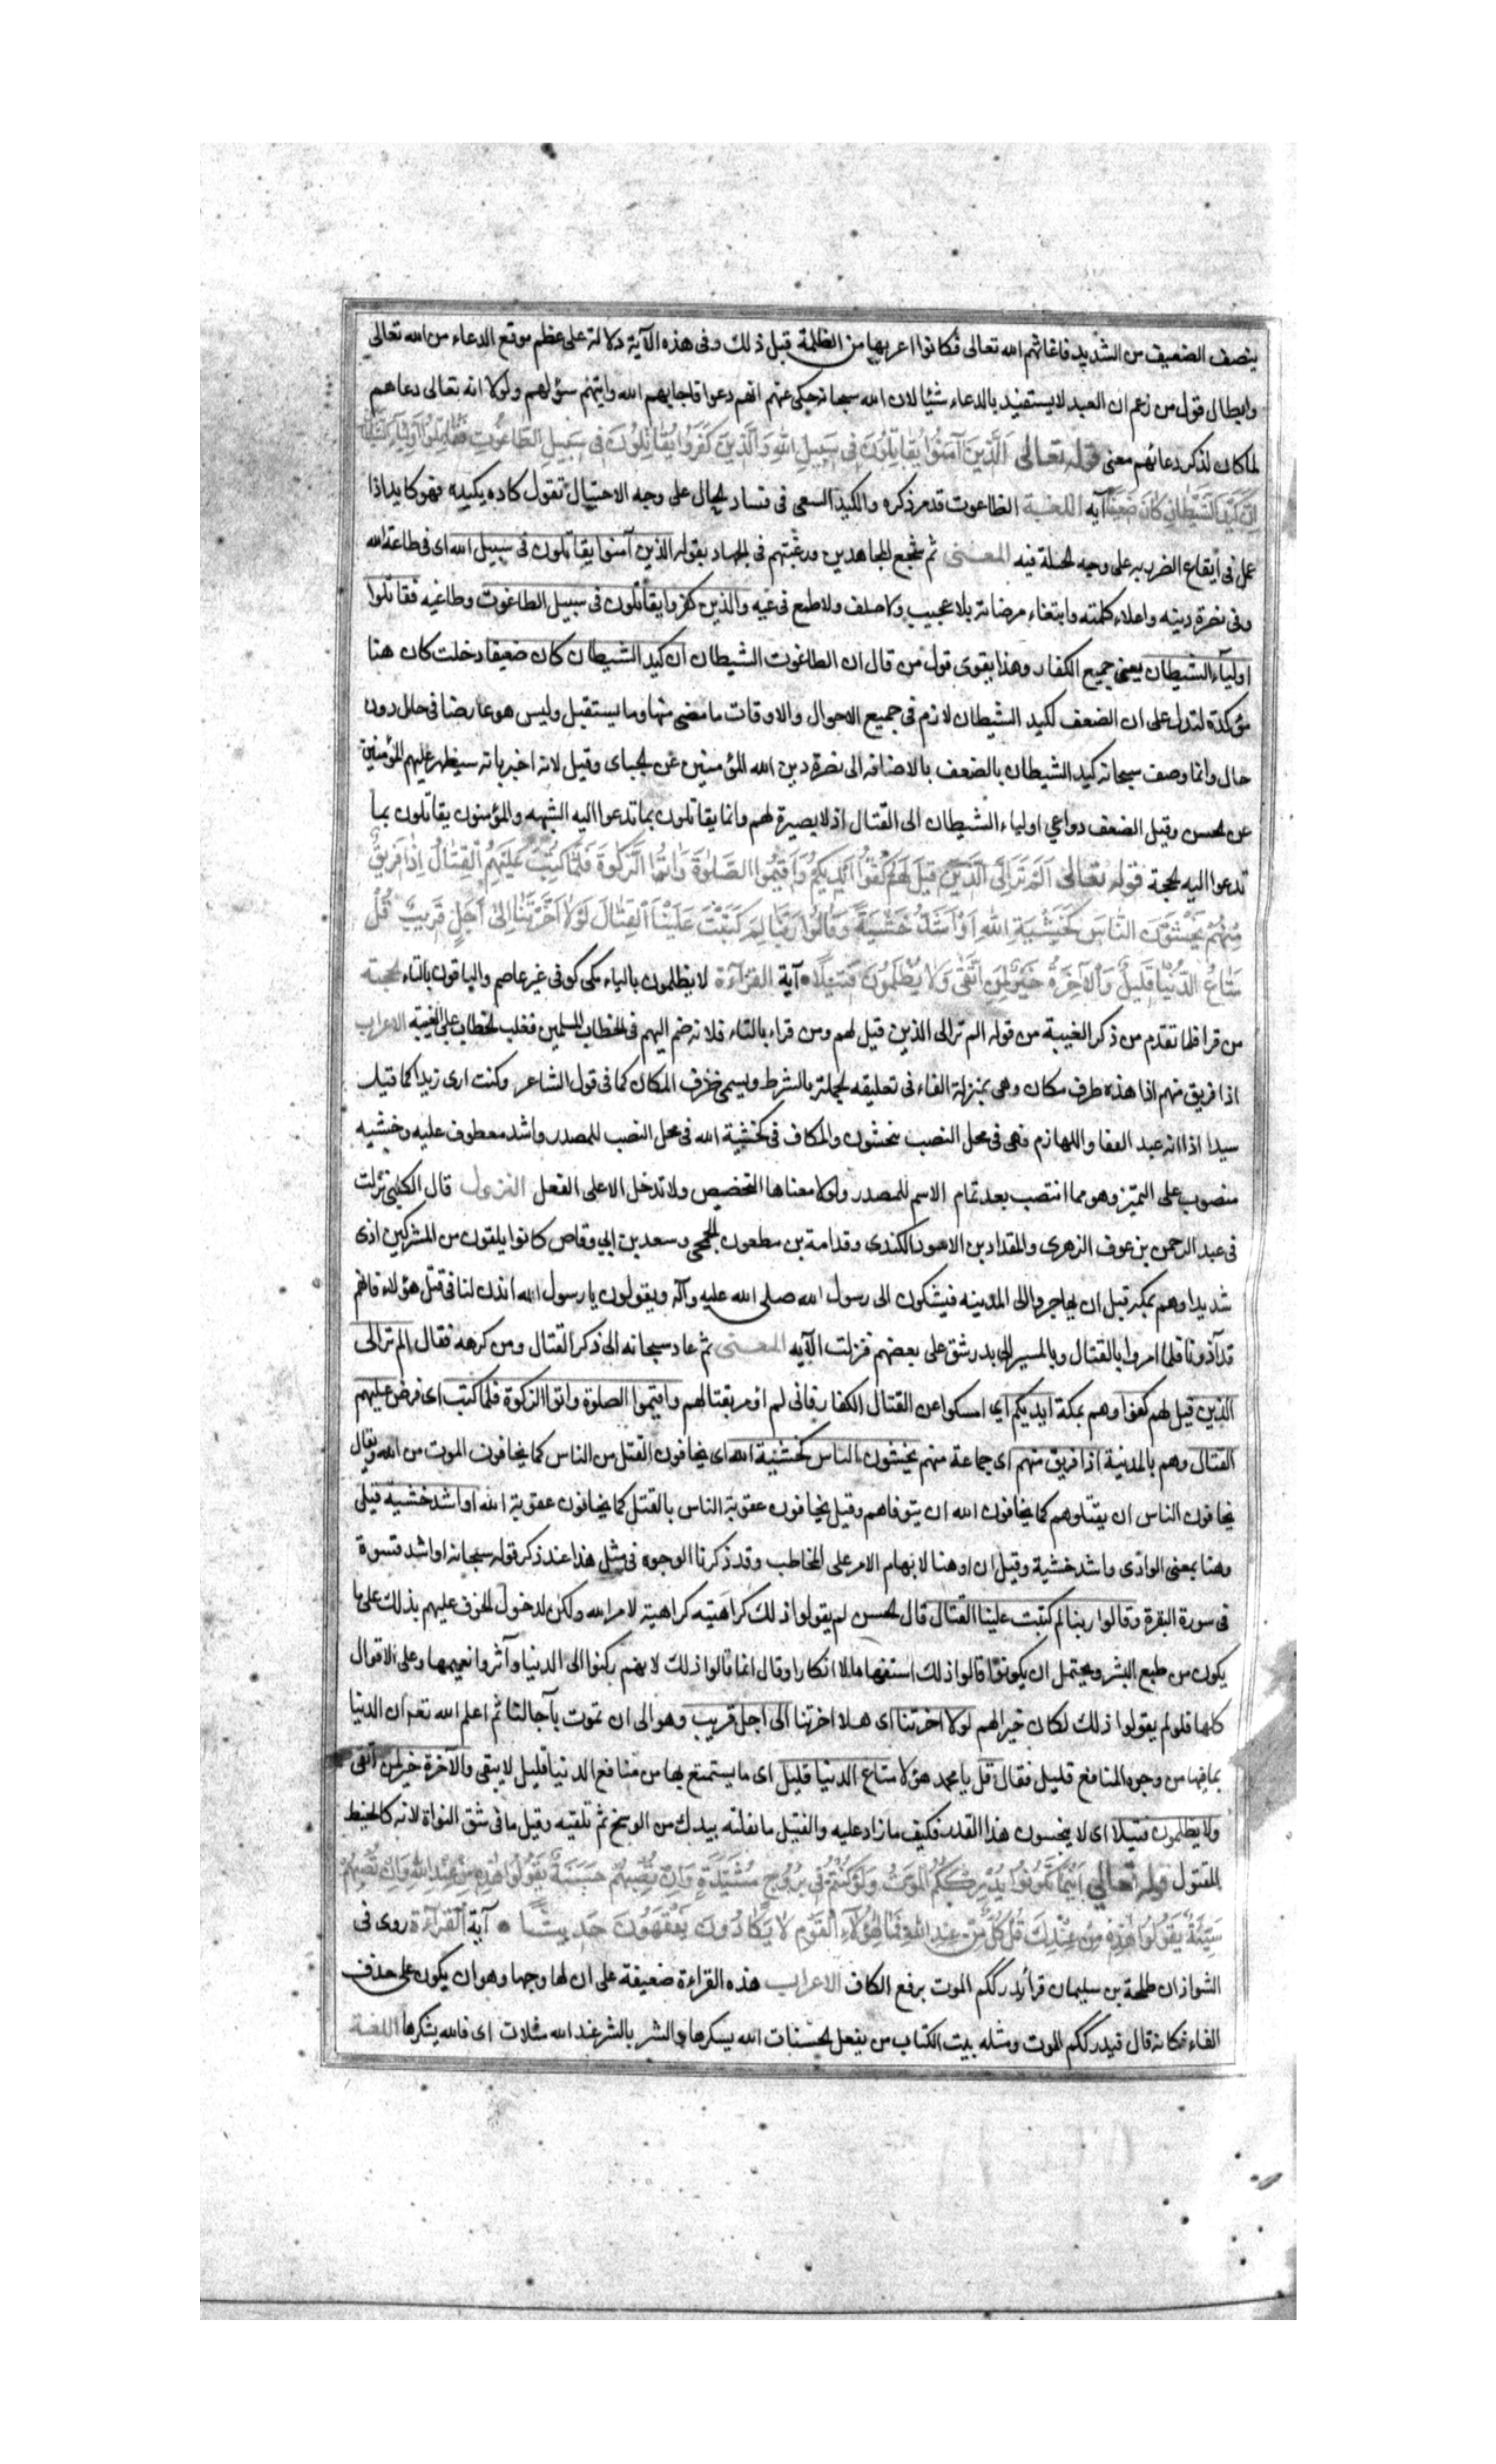 ينصف الضعيف من الشديد فاغاثهم الله تعالى فكانوا اعز بها من الظلمة قبل ذلك وفى هذه الآية دلالة على عظم موقع الدعاء من الله تعالى
وابطال قول من زعم ان العبد لا يستفيد بالدعاء شيئا لان الله سبحانه حكى عنهم انهم دعوا فاجابهم الله وايتهم سؤلهم ولولا انه تعالى دعاهم
لما كان لذكر دعائهم معنى قوله تعالى الَّذِينَ آمَنُوا يُقَاتِلُونَ فِى سَبِيلِ اللهِ وَالَّذِينَ كَفَرُوا يُقَاتِلُونَ فِى سَبِيلِ الطَّاغُوتِ فَقَاتِلُوا أَوْلِيَاءَ الشَّيْطَانِ
اِنَّ كَيْدَ الشَّيْطَانِ كَانَ ضَعِيفًا آية اللغة الطاغوت قد مر ذكره والكيد السعى فى فساد الحال على وجه الاحتيال تقول كاده يكيده فهو كايد اذا
عمل فى ايقاع الضرر به على وجه الحيلة فيه المعنى ثم شجع المجاهدين ورغبتهم فى الجهاد بقوله الذين آمنوا يقاتلون فى سبيل الله اى فى طاعة الله
وفى نصرة دينه واعلاء كلمته وابتغاء مرضاته بلا عجيب ولا صلف ولا طمع فى غيه والذين كفروا يقاتلون فى سبيل الطاغوت وطاغيه فقاتلوا
اولياء الشيطان يعنى جميع الكفار وهذا يقوى قول من قال ان الطاغوت الشيطان ان كيد الشيطان كان ضعيفا دخلت كان هنا
مؤكدة لتدل على ان الضعف لكيد الشيطان لازم فى جميع الاحوال والاوقات ما مضى منها وما يستقبل وليس هو عارضا فى حال دون
حال وانما وصف سبحانه كيد الشيطان بالضعف بالاضافه الى نصرة دين الله المؤمنين عن الجباى وقيل لانه اخبر بانه سيظهر عليهم المؤمنين
عن الحسن وقيل الضعف دواعي اولياء الشيطان الى القتال اذ لا بصيرة لهم وانما يقاتلون بما تدعوا اليه الشبهه والمؤمنون يقاتلون بما
تدعوا اليه الحجة قوله تعالى اَلَمْ تَرَ اِلَى الَّذِينَ قِيلَ لَهُمْ كُفُّوا اَيْدِيَكُمْ وَاَقِيمُوا الصَّلٰوةَ وَاٰتُوا الزَّكٰوةَ فَلَمَّا كُتِبَ عَلَيْهِمُ الْقِتَالُ اِذَا فَرِيقٌ
مِنْهُمْ يَخْشَوْنَ النَّاسَ كَخَشْيَةِ اللهِ اَوْ اَشَدَّ خَشْيَةً وَقَالُوا رَبَّنَا لِمَ كَتَبْتَ عَلَيْنَا الْقِتَالَ لَوْلَا اَخَّرْتَنَا اِلَى اَجَلٍ قَرِيبٍ قُلْ
مَتَاعُ الدُّنْيَا قَلِيلٌ وَالْآخِرَةُ خَيْرٌ لِمَنِ اتَّقَى وَلَا يُظْلَمُونَ فَتِيلًا آية القراءة لا يظلمون بالياء مكى كوفى غير عاصم والباقون بالتاء الحجة
من قرا فلما تقدم من ذكر الغيبة من قوله الم تر الى الذين قيل لهم ومن قراء بالتاء فلانه ضم اليهم فى الخطاب المسلمين فغلب الخطاب على الغيبة الاعراب
اذا فريق منهم اذا هذه ظرف مكان وهى بمنزلة الفاء فى تعليقه الجملة بالشرط ويسمى ظرف المكان كما فى قول الشاعر وكنت ارى زيدا كما قيل
سيدا اذا انه عبد القفا واللهازم فهى فى محل النصب بيخشون والكاف فى كخشية الله فى محل النصب للمصدر واشد معطوف عليه وخشيه
منصوب على التميز وهو مما انتصب بعد تمام الاسم للمصدر ولولا معناها التخضيص ولا تدخل الا على الفعل النزول قال الكلبى نزلت
فى عبد الرحمن بن عوف الزهرى والمقداد بن الاسود الكندى وقدامة بن مظعون الجمحى وسعد بن ابي وقاص كانوا يلقون من المشركين اذى
شديدا وهم بمكة قبل ان يهاجروا الى المدينه فيشكون الى رسول الله صلى الله عليه وآله ويقولون يا رسول الله ائذن لنا فى قتل هؤلاء فانهم
قد آذونا فلما امروا بالقتال وبالمسير الى بدر شق على بعضهم فنزلت الآيه المعنى ثم عاد سبحانه الى ذكر القتال ومن كرهه فقال الم تر الى
الذين قيل لهم كفوا وهم بمكة ايديكم اى امسكوا عن القتال الكفار فانى لم اؤمر بقتالهم واقيموا الصلوة واتوا الزكوة فلما كتب اى فرض عليهم
القتال وهم بالمدينة اذا فريق منهم اى جماعة منهم يخشون الناس كخشية الله اى يخافون القتل من الناس كما يخافون الموت من الله ويقال
يخافون الناس ان يقتلوهم كما يخافون الله ان يتوفاهم وقيل يخافون عقوبة الناس بالقتل كما يخافون عقوبة الله او اشد خشيه قيل
وهنا بمعنى الواو اى واشد خشية وقيل ان او هنا لابهام الامر على المخاطب وقد ذكرنا الوجوه فى مثل هذا عند ذكر قوله سبحانه او اشد قسوة
فى سورة البقرة وقالوا ربنا لم كتبت علينا القتال قال الحسن لم يقولوا ذلك كراهيته كراهية لامر الله ولكن لدخول الخوف عليهم بذلك على ما
يكون من طبع البشر ويحتمل ان يكونوا قالوا ذلك استفهاما لا انكارا وقال انما قالوا ذلك لانهم ركنوا الى الدنيا وآثروا نعيمها وعلى الاقوال
كلها فلو لم يقولوا ذلك لكان خيرا لهم لولا اخرتنا اى هلا اخرتنا الى اجل قريب وهو الى ان نموت بآجالنا ثم اعلم الله تعه ان الدنيا
بما فيها من وجوه المنافع قليل فقال قل يا محمد هؤلا متاع الدنيا قليل اى ما يستمتع بها من منافع الدنيا قليل لا يبقى والآخرة خير لمن اتقى
ولا يظلمون فتيلا اى لا يبخسون هذا القدر فكيف ما زاد عليه والفتيل ما تفلته بيدك من الوسخ ثم تلقيه وقيل ما فى شق النواة لانه كالخيط
المفتول قوله تعالى اَيْنَمَا تَكُونُوا يُدْرِكْكُمُ الْمَوْتُ وَلَوْ كُنْتُمْ فِى بُرُوجٍ مُشَيَّدَةٍ وَاِنْ تُصِبْهُمْ حَسَنَةٌ يَقُولُوا هٰذِهِ مِنْ عِنْدِ اللهِ وَاِنْ تُصِبْهُمْ
سَيِّئَةٌ يَقُولُوا هٰذِهِ مِنْ عِنْدِكَ قُلْ كُلٌّ مِنْ عِنْدِ اللهِ فَمَالِ هٰؤُلَاءِ الْقَوْمِ لَا يَكَادُونَ يَفْقَهُونَ حَدِيثًا آية القراءة روى فى
الشواذ ان طلحة بن سليمان قرأ يدرككم الموت برفع الكاف الاعراب هذه القراءة ضعيفة على ان لها وجها وهو ان يكون على حذف
الفاء فكانه قال فيدرككم الموت ومثله بيت الكتاب من يفعل الحسنات الله يسكرها والشر بالشر عند الله مثلان اى فالله يشكرها اللغة